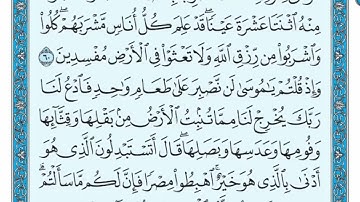 مِنْهُ ٱثْنَتَا عَشْرَةَ عَيْنًاۖ قَدْ عَلِمَ كُلُّ أُنَاسٍ مَّشْرَبَهُمْۖ كُلُوا۟
وَٱشْرَبُوا۟ مِن رِّزْقِ ٱللَّهِ وَلَا تَعْثَوْا۟ فِى ٱلْأَرْضِ مُفْسِدِينَ ٦٠
وَإِذْ قُلْتُمْ يَـٰمُوسَىٰ لَن نَّصْبِرَ عَلَىٰ طَعَامٍ وَٰحِدٍ فَٱدْعُ لَنَا
رَبَّكَ يُخْرِجْ لَنَا مِمَّا تُنۢبِتُ ٱلْأَرْضُ مِنۢ بَقْلِهَا وَقِثَّآئِهَا
وَفُومِهَا وَعَدَسِهَا وَبَصَلِهَاۖ قَالَ أَتَسْتَبْدِلُونَ ٱلَّذِى هُوَ
أَدْنَىٰ بِٱلَّذِى هُوَ خَيْرٌۚ ٱهْبِطُوا۟ مِصْرًا فَإِنَّ لَكُم مَّا سَأَلْتُمْۗ